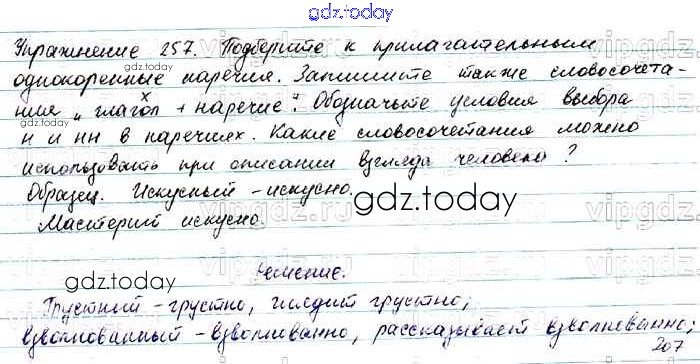 gdz.today
Упражнение 257. Подберите к прилагательным
gdz.today
однокоренные наречия. Запишите также словосочета-
ния „глагол + наречие“. Обозначьте условия выбора
gdz.today
н и нн в наречиях. Какие словосочетания можно
использовать при описании взгляда человека?
Образец. Искусный - искусно.
gdz.today
Мастерит искусно.
gdz.today
Решение.
Грустный - грустно, глядит грустно;
взволнованный - взволнованно, рассказывает взволнованно;
207